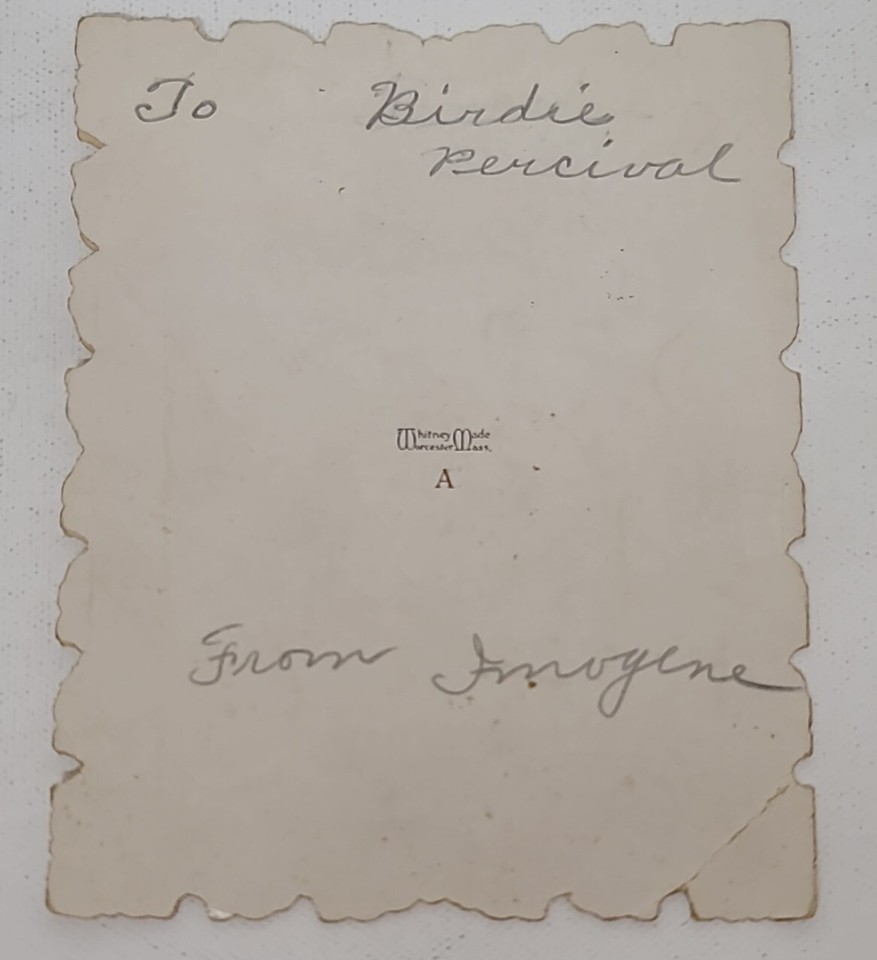 To Birdie
Percival
Whitney Made
Worcester Mass.
A
From Imogene